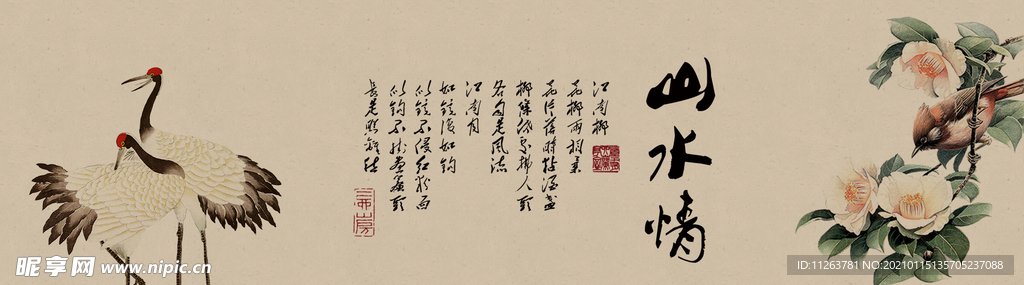 山水情
江南柳
花柳兩相柔
花片落時粘酒盞
柳條低處拂人頭
各自是風流
江南月
如鏡復如鈎
似鏡不侵紅粉面
似鈎不挂畫簾頭
長是照離愁
昵享网 www.nipic.cn
ID:11263781 NO:20210115135705237088